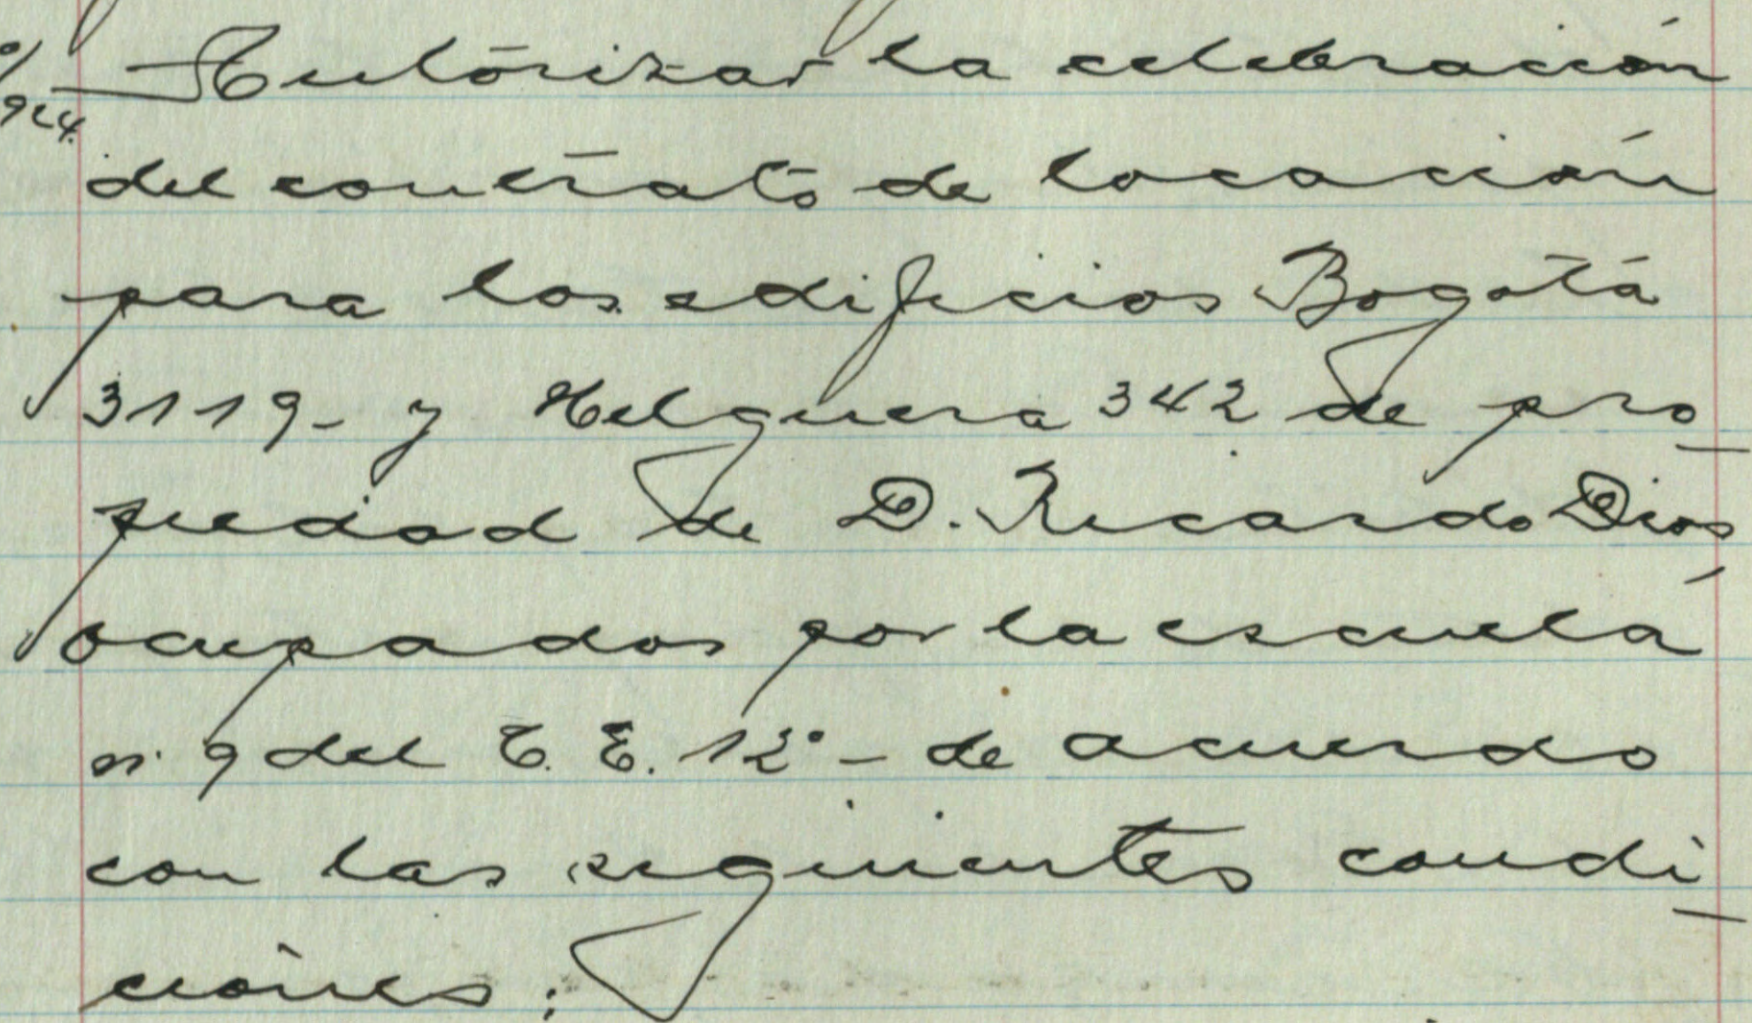 Autorizar la celebración
del contrato de locación
para los edificios Bogotá
3119- y Helguera 342 de pro_
piedad de D. Ricardo Dios
ocupados por la escuela
n. 9 del C. E. 12° - de acuerdo
con las siguientes condi_
ciones: